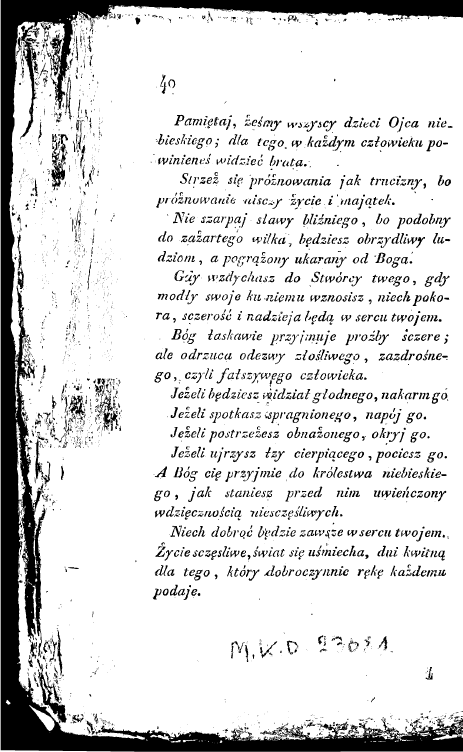 40
Pamiętaj, żeśmy wszyscy dzieci Ojca nie-
bieskiego; dla tego w każdym człowieku po-
winieneś widzieć brata.
Strzeż się próżnowania jak trucizny, bo
próżnowanie nisczy życie i majątek.
Nie szarpaj sławy bliźniego, bo podobny
do zażartego wilka, będziesz obrzydliwy lu-
dziom, a pogrążony ukarany od Boga.
Gdy wzdychasz do Stwórcy twego, gdy
modły swoje ku niemu wznosisz, niech poko-
ra, sczerość i nadzieja będą w sercu twojem.
Bóg łaskawie przyjmuje proźby sczere;
ale odrzuca odezwy złośliwego, zazdrośne-
go, czyli fałszywego człowieka.
Jeżeli będziesz widział głodnego, nakarm go.
Jeżeli spotkasz spragnionego, napój go.
Jeżeli postrzeżesz obnażonego, okryj go.
Jeżeli ujrzysz łzy cierpiącego, pociesz go.
A Bóg cię przyjmie do królestwa niebieskie-
go, jak staniesz przed nim uwieńczony
wdzięcznością niesczęśliwych.
Niech dobroć będzie zawsze w sercu twojem.
Życie sczęsliwe, świat się uśmiecha, dni kwitną
dla tego, który dobroczynnie rękę każdemu
podaje.
M.K.D